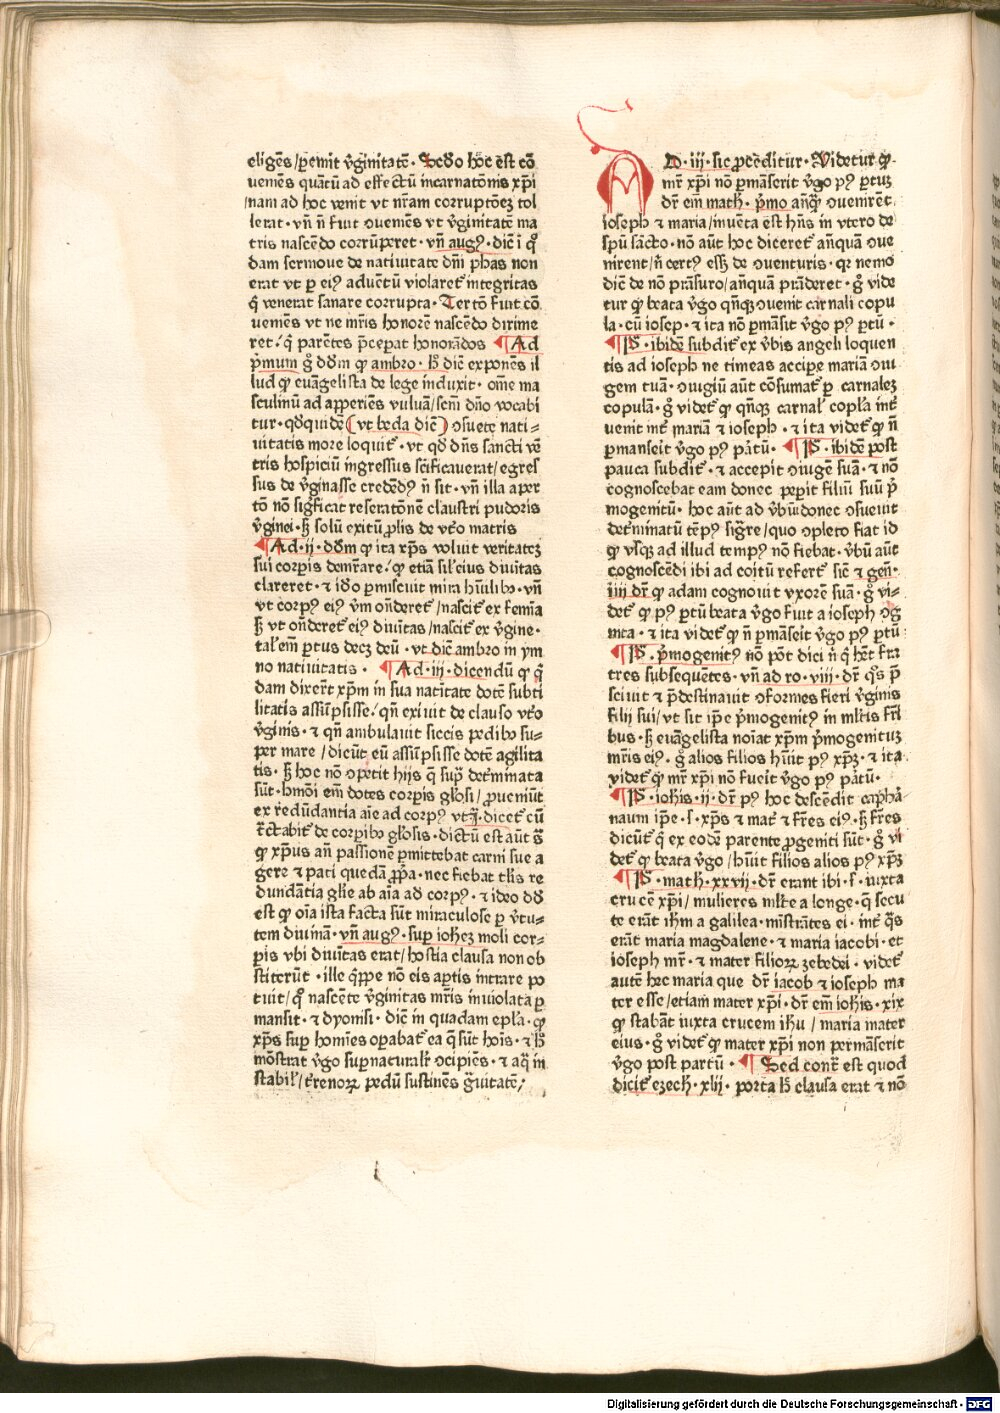 eligēs / ꝑemit v̓ginitatē · Secd̓o hoc est cō
ueniēs quātū ad effectū incarnatōnis xp̄i
/nam ad hoc venit vt nr̄am corruptōeꝫ tol
lerat · vn̄ n̄ fuit ꝯueniēs vt v̓ginitatē ma
tris nascēdo corrūperet · vn̄ augꝰ · dic̄ ī q̊
dam sermone de natiuitate dn̄i phas non
erat vt ꝑ eiꝰ aduētū violaret᷑ integritas
q̄ venerat sanare corrupta · Tertō fuit cō
ueniēs vt ne mr̄is honorē nascēdo dirime
ret / q̄ parētes p̄ceꝑat honorādos ¶ Ad
p̄mum g̊ dd̓m ꝙ ambro · h̄ dic̄ exponēs il
lud ꝙ euāgelista de lege induxit · om̄e ma
sculinū ad apꝑiēs vuluā / scm̄ dn̄o vocabi
tur · qd̓quidē ( vt beda dic̄ ) ꝯsuete nati⸗
uitatis more loquit᷑ · vt qd̓ dn̄s sancti vē
tris hospiciū ingressus sc̄ificauerat / egres
sus de v̓ginasse credēdꝰ n̄ sit · vn̄ illa aꝑer
tō nō sig̓ficat reseratōnē claustri pudoris
v̓ginei · sꝫ solū exitū ꝓlis de vt̓o matris
¶ Ad · ij · dd̓m ꝙ ita xp̄s voluit veritateꝫ
sui corꝑis demr̄are / ꝙ etiā sil̓ eius diuitas
clareret · ⁊ id̓o ꝑmiscuit mira hūilibꝰ · vn̄
vt corpꝰ eiꝰ v̓m on̄deret᷑ / nascit᷑ ex femīa
sꝫ vt on̄deret᷑ eiꝰ diuītas / nascit᷑ ex v̓gine ·
tal̓em ꝑtus decꝫ deū · vt dic̄ ambro in ym
no natiuitatis · ¶ Ad · iij · dicendū ꝙ q̄
dam dixer̄t xp̄m in sua natiītate dotē subti
litatis assūpsisse / qn̄ exiuit de clauso vt̓o
v̓ginis · ⁊ qn̄ ambulauit siccis pedibꝰ su⸗
per mare / dicūt eū assūpsisse dotē agilita
tis · sꝫ hoc nō ꝯpetit hijs q̄ supͣ det̓minata
sūt · hmōi em̄ dotes corꝑis gl̓osi / ꝓueniūt
ex redūdantia aīe ad corpꝰ vt īͣ · dicet᷑ cū
tͣctabit᷑ de corꝑibꝰ gl̓osis · dictū est aūt sͣ
ꝙ xp̄us an̄ passionē ꝑmittebat carni sue a
gere ⁊ pati quedā ꝓpͥa · nec fiebat tl̓is re
dundātia gl̓ie ab aīa ad corpꝰ · ⁊ ideo dd̓
est ꝙ oīa ista facta sūt miraculose ꝑ v̓tu⸗
tem diuinā · vn̄ augꝰ · suꝑ ioheꝫ moli cor⸗
ꝑis vbi diuītas erat / hostia clausa non ob
stiterūt · ille q̄ppe nō eis aꝑtis intrare po
tuit / qͦ nascēte v̓ginitas mr̄is inuiolata ꝑ
mansit · ⁊ dyonisi · dic̄ in quadam epl̓a · ꝙ
xp̄s suꝑ hoīnies oꝑabat᷑ ea q̄ sūt hoīs · ⁊ h̄
mōstrat v̓go suꝑnatural̓r ꝯcipiēs · ⁊ aq̄ in
stabil̓ / t̓renoꝝ pedū sustinēs g̓uitatē ·
AD · iij · sic ꝓcēditur · Videtur ꝙ
mr̄ xp̄i nō ꝑmāserit v̓go pꝰ ꝑtuꝫ
dr̄ em̄ math · p̄mo an̄q̄ ꝯuenirēt
ioseph ⁊ maria / inuēta est hn̄s in vtero de
spū sācto · nō aūt hoc diceret᷑ an̄quā ꝯue
nirent / n̄ certꝰ esset de ꝯuenturis · qꝛ nemo
dic̄ de nō prāsuro / an̄quā prāderet · g̊ vide
tur ꝙ beata v̓go qn̄qꝫ ꝯuenit carnali copu
la · cū iosep · ⁊ ita nō ꝑmāsit v̓go pꝰ ꝑtū ·
¶ P̄ · ibidē subdit᷑ ex v̓bis angeli loquen
tis ad ioseph ne timeas accipe mariā ꝯiu
gem tuā · ꝯiugiū aūt cōsumat᷑ ꝑ carnaleꝫ
copulā · g̊ videt᷑ ꝙ qn̄qꝫ carnal̓ copl̓a int̓
uenit int̓ mariā ⁊ ioseph · ⁊ ita videt᷑ ꝙ n̄
ꝑmanseit v̓go pꝰ ꝑātū · ¶ P̄ · ibidē post
pauca subdit᷑ · ⁊ accepit ꝯiugē suā · ⁊ nō
cognoscebat eam donec peꝑit filiū suū p̄
mogenitū · hoc aūt ad v̓biū donec ꝯsueuit
det̓minatū tēpꝰ sig̓re / quo ꝯpleto fiat id
ꝙ vsqꝫ ad illud tempꝰ nō fiebat · v̓bū aūt
cognoscēdi ibi ad coitū refert᷑ sic̄ ⁊ gen̄ ·
iiij dr̄ ꝙ adam cognouit vxorē suā · g̊ vi⸗
det᷑ ꝙ pꝰ ꝑtū beata v̓go fuit a ioseph ꝯg
nita · ⁊ ita videt᷑ ꝙ n̄ ꝑmāseit v̓go pꝰ ꝑtū ·
¶ P̄ · p̄mogenitꝰ nō pōt dici n̄ q̄ hēt fra
tres subsequētes · vn̄ ad ro · viii · dr̄ qͦs p̄
sciuit ⁊ p̄destinauit ꝯformes fieri v̓ginis
filij sui / vt sit ip̄e p̄mogenitꝰ in ml̓tis fr̄i
bus · sꝫ euāgelista noīat xp̄m p̄mogenituꝫ
mr̄is eiꝰ · g̊ alios filios hūit pꝰ xp̄ꝫ · ⁊ ita
videt᷑ ꝙ mr̄ xp̄i nō fueit v̓go pꝰ ꝑātū ·
¶ P̄ · ioh̄is · ij · dr̄ pꝰ hoc descēdit caphā
naum ip̄e · s · xp̄s ⁊ mat̓ ⁊ fr̄es eiꝰ · sꝫ fr̄es
dicūt᷑ q̄ ex eodē parente ꝓgeniti sūt · g̊ vi
det᷑ ꝙ beata v̓go / hūit filios alios pꝰ xp̄ꝫ
¶ P̄ · math̄ · xxvij · dr̄ erant ibi · s · iuxta
crucē xp̄i / mulieres ml̓te a longe · q̄ secu
te erāt ih̄m a galilea · mīstrātes ei · int̓ qͣs
erāt maria magdalene · ⁊ maria iacobi · et
ioseph mr̄ · ⁊ mater filioꝝ zebedei · videt᷑
autē hec maria que dr̄ iacob ⁊ ioseph ma
ter esse / etiam mater xp̄i · dr̄ em̄ ioh̄is · xix
ꝙ stabāt iuxta crucem ih̄u / maria mater
eius · g̊ videt᷑ ꝙ mater xp̄i non permāserit
v̓go post partū · ¶ Sed contͣ est quod
dicit᷑ ezech · xlij · porta h̄ clausa erat ⁊ nō
Digitalisierung gefördert durch die Deutsche Forschungsgemeinschaft - DFG